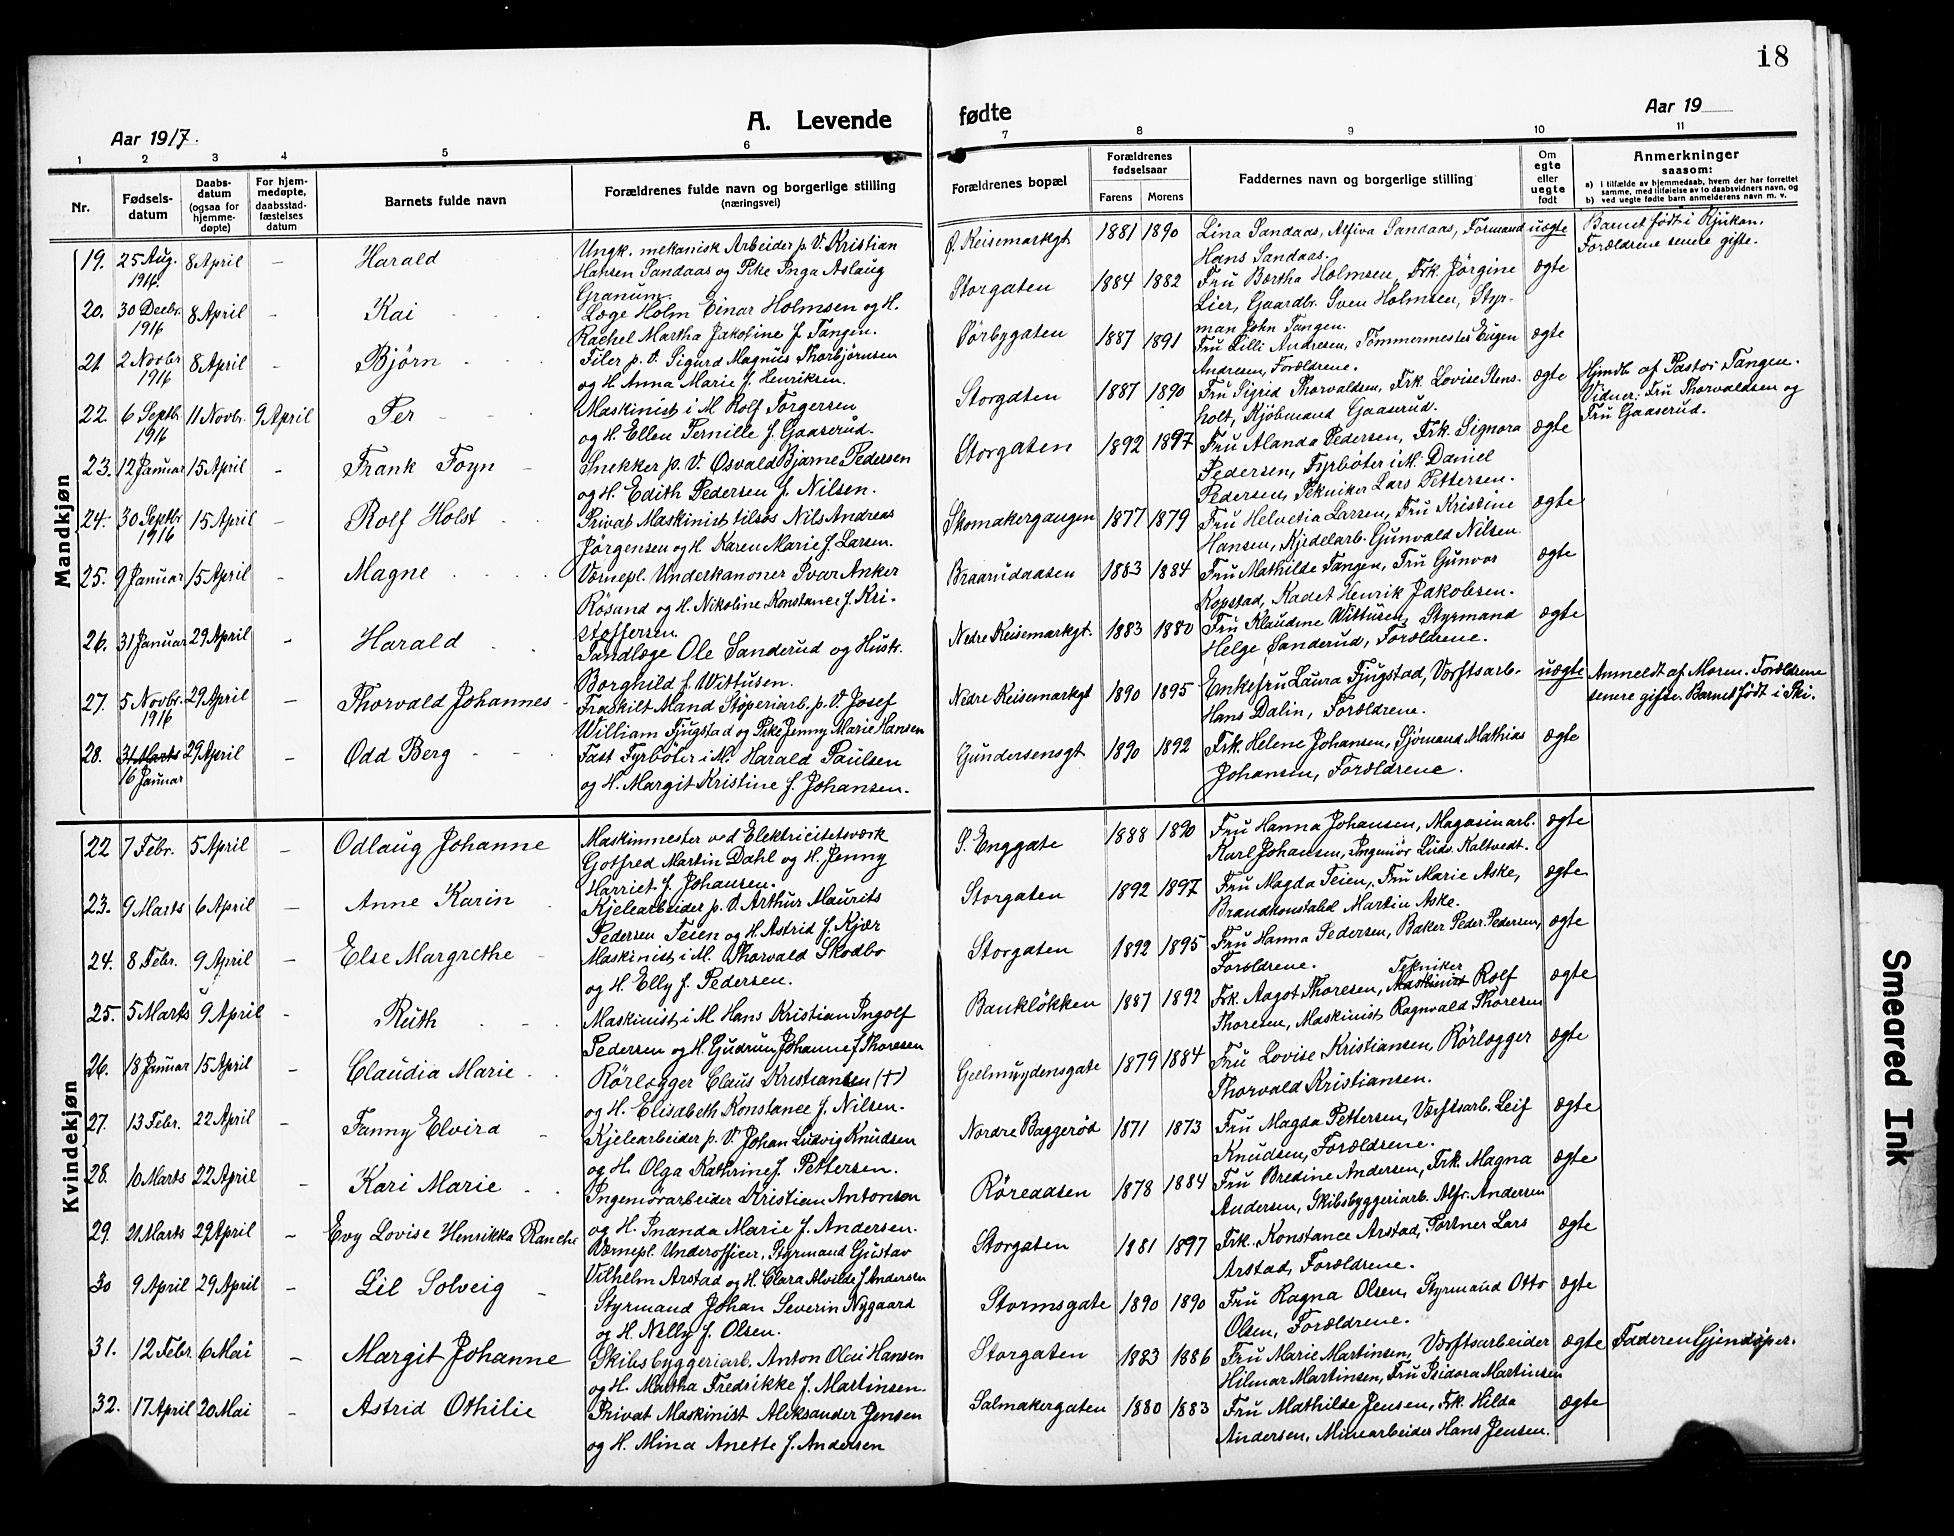 18
Aar 1917.
A. Levende
fødte
Aar 19
1 2 3 4 5 6 7 8 9 10 11
Nr.
Fødsels-
datum
Daabs-
datum
(ogsaa for
hjemme-
døpte)
For hjem-
medøpte,
daabsstad-
fæstelses
datum
Barnets fulde navn
Forældrenes fulde navn og borgerlige stilling
(næringsvei)
Forældrenes bopæl
Forældrenes
fødselsaar
Farens Morens
Faddernes navn og borgerlige stilling
Om
egte
eller
uegte
født
Anmerkninger
saasom:
a) i tilfælde av hjemmedaab, hvem der har forrettet
samme, med tilføielse av to daabsvidners navn, og
b) ved uegte fødte barn anmelderens navn m. v.
Mandkjøn
19. 25 Aug. 1916 8 April - Harald
Ungk. mekanisk Arbeider p. V. Kristian
Hansen Sandaas og Pike Inga Aslaug
Granum.
Ø. Keisemarkgt 1881 1890
Lina Sandaas, Alfiva Sandaas, Formand
Hans Sandaas.
uægte
Barnet født i Rjukan.
Forældrene senere gifte.
20. 30 Decbr. 1916 8 April - Kai
Læge Holm Einar Holmsen og H.
Rachel Martha Jakobine f. Tangen.
Storgaten 1884 1882
Fru Bertha Holmsen, Frk. Jørgine
Lier, Gaardbr. Sven Holmsen, Styr-
man John Tangen.
ægte
21 2 Novbr 1916 8 April - Bjørn
Filer p. V. Sigurd Magnus Thorbjørnsen
og H. Anna Marie f. Henriksen.
Ørbygaten 1887 1891
Fru Lilli Andresen, Tømmermester Eugen
Andresen, Forældrene.
ægte
22. 6 Septbr. 1916 11 Novbr. 9 April Per
Maskinist i M. Rolf Torgersen
og H. Ellen Pernille f. Gaaserud.
Storgaten 1887 1890
Fru Sigrid Thorvaldsen, Frk. Lovise Stens-
holt, Kjøbmand Gaaserud.
ægte
Hjmdb. af Pastor Tangen.
Vidner: Fru Thorvaldsen og
Fru Gaaserud.
23. 12 Januar 15 April - Frank Foyn
Snekker p. V. Osvald Bjarne Pedersen
og H. Edith Pedersen f. Nilsen.
Storgaten 1892 1897
Fru Alanda Pedersen, Frk. Signora
Pedersen, Fyrbøter i M. Daniel
Pedersen, Tekniker Lars Pettersen.
ægte
24. 30 Septbr 1916 15 April - Rolf Holst
Privat Maskinist tilsøs Nils Andreas
Jørgensen og H. Karen Marie f. Larsen.
Skomakergangen 1877 1879
Fru Helvetia Larsen, Fru Kristine
Hansen, Kjedelarb. Gunvald Nilsen.
ægte
25. 9 Januar 15 April - Magne
Værnepl. Underkanoner Ivar Anker
Røsand og H. Nikoline Konstance f. Kri-
stoffersen.
Braarudaasen 1883 1884
Fru Mathilde Tangen, Fru Gunvor
Kopstad, Kadet Henrik Jakobsen.
ægte
26. 31 Januar 29 April - Harald
Tandlæge Ole Sanderud og Hustr.
Borghild f. Wittusen.
Nedre Keisemarkgt. 1883 1880
Fru Klaudine Wittusen, Styrmand
Helge Sanderud, Forældrene.
ægte
27. 5 Novbr. 1916 29 April - Thorvald Johannes
Fraskilt Mand Støperiarb. p. V. Josef
William Fjugstad og Pike Jenny Marie Hansen
Nedre Keisemarkgt 1890 1895
Enkefru Laura Fjugstad, Værftsarb.
Hans Dalin, Forældrene.
uægte
Anmeldt af Moren. Forældrene
senere gifte. Barnet født i Ski.
28. 31 Marts 16 Januar 29 April - Odd Berg
Fast Fyrbøter i M. Harald Paulsen
og H. Margit Kristine f. Johansen.
Gundersensgt 1890 1892
Frk. Helene Johansen, Sjømand Mathias
Johansen, Forældrene.
ægte
Kvindekjøn
22 7 Febr. 5 April - Odlaug Johanne
Maskinmester ved Elektricitetsværk
Gotfred Martin Dahl og H. Jenny
Harriet f. Johansen.
S. Enggate 1888 1890
Fru Hanna Johansen, Magasinarb.
Karl Johansen, Ingeniør Ludv. Kaltvedt.
ægte
23. 9 Marts 6 April - Anne Karin
Kjelearbeider p. V. Arthur Maurits
Pedersen Teien og H. Astrid f. Kjær
Storgaten 1892 1897
Fru Magda Teien, Fru Marie Aske,
Brandkonstabel Martin Aske.
ægte
24. 8 Febr. 9 April - Else Margrethe
Maskinist i M. Thorvald Skodbo
og H. Elly f. Pedersen.
Storgaten 1892 1895
Fru Hanna Pedersen, Baker Peder Pedersen,
Forældrene.
ægte
25. 5 Marts 9 April - Ruth
Maskinist i M Hans Kristian Ingolf
Pedersen og H. Gudrun Johanne f. Thoresen
Bankløkken 1887 1892
Frk. Aagot Thoresen, Maskinist Tekniker Rolf
Thoresen, Maskinist Ragnvald Thoresen
ægte
26. 18 Januar 15 April - Claudia Marie
Rørlægger Claus Kristiansen (†)
og H. Elisabeth Konstance f. Nilsen.
Geelmuydensgate 1879 1884
Fru Lovise Kristiansen, Rørlægger
Thorvald Kristiansen.
ægte
27. 13 Febr. 22 April - Fanny Elvira
Kjelearbeider p. V. Johan Ludvig Knudsen
og H. Olga Kathrine f. Pettersen.
Nordre Baggerød 1871 1873
Fru Magda Pettersen, Værftsarb. Leif
Knudsen, Forældrene.
ægte
28. 16 Marts 22 April - Kari Marie
Ingeniørarbeider Kristian Antonsen
og H. Inanda Marie f. Andersen.
Røreaasen 1878 1884
Fru Bredine Andersen, Frk. Magna
Andersen, Skibsbyggeriarb. Alfr. Andersen
ægte
29. 21 Marts 29 April - Evy Lovise Henrikka Ranche
Værnepl. Underofficer, Styrmand Gustav
Vilhelm Arstad og H. Clara Alvilde f. Andersen
Storgaten 1881 1897
Frk. Konstance Arstad, Portner Lars
Arstad, Forældrene.
ægte
30 9 April 29 April - Lil Solveig
Styrmand Johan Severin Nygaard
og H. Nelly f. Olsen.
Stormsgate 1890 1890
Fru Ragna Olsen, Styrmand Otto
Olsen, Forældrene.
ægte
31. 12 Febr. 6 Mai - Margit Johanne
Skibsbyggeriarb. Anton Olai Hansen
og H. Martha Fredrikke f. Martinsen.
Storgaten 1883 1886
Fru Marie Martinsen, Værftsarbeider
Hilmar Martinsen, Fru Isidora Martinsen
ægte
Faderen Gjendøper.
32. 17 April 20 Mai - Astrid Othilie
Privat Maskinist Aleksander Jensen
og H. Mina Anette f. Andersen
Salmakergaten 1880 1883
Fru Mathilde Jensen, Frk. Hilda
Andersen, Minearbeider Hans Jensen.
ægte
Smeared Ink